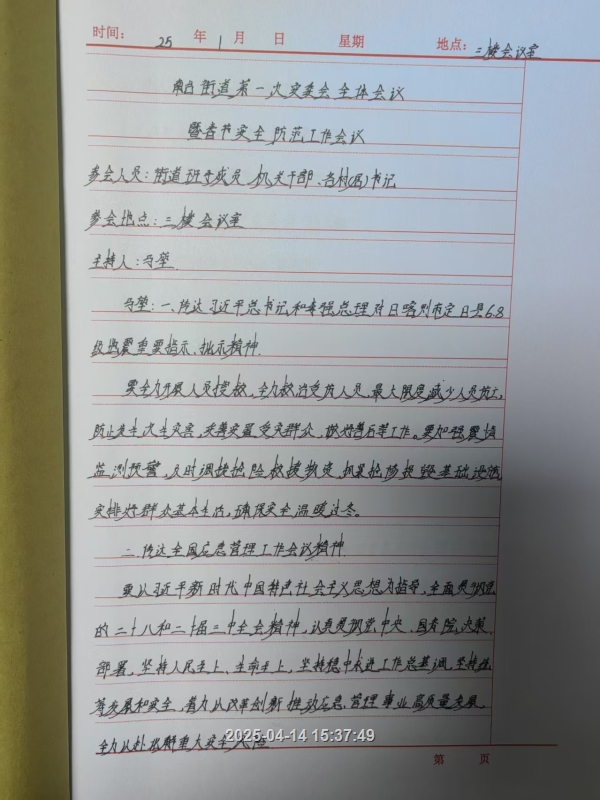 时间: 25 年 1 月 日 星期 地点: 三楼会议室
街道第一次安委会全体会议
暨春节安全防范工作会议
参会人员:街道班子成员、机关干部、各村(居)书记
参会地点:三楼会议室
主持人:马堃
马堃:一、传达习近平总书记和李强总理对日喀则市定日县6.8
级地震重要指示、批示精神
要全力开展人员搜救,全力救治受伤人员,最大限度减少人员伤亡,
防止发生次生灾害,妥善安置受灾群众,做好善后等工作。要加强震情
监测预警,及时调拨抢险救援物资,抓紧抢修损毁基础设施
安排好群众基本生活,确保安全温暖过冬。
二、传达全国应急管理工作会议精神
要以习近平新时代中国特色社会主义思想为指导,全面贯彻党
的二十大和二十届三中全会精神,认真贯彻党中央、国务院决策
部署,坚持人民至上、生命至上,坚持稳中求进工作总基调,坚持统
筹发展和安全,着力以改革创新推动应急管理事业高质量发展,
全力以赴化解重大安全风险
2025-04-14 15:37:49
第 页